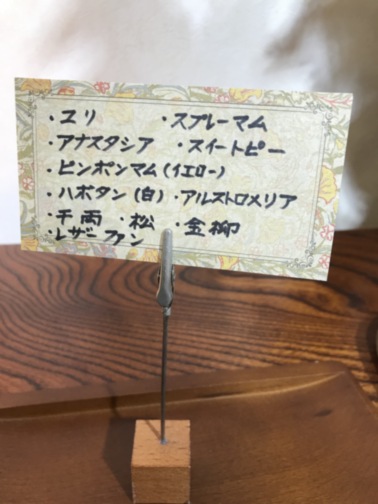 ・ユリ ・スプレーマム
・アナスタシア ・スイートピー
・ピンポンマム(イエロー)
・ハボタン(白)・アルストロメリア
・千両 ・松 ・金柳
・レザーファン